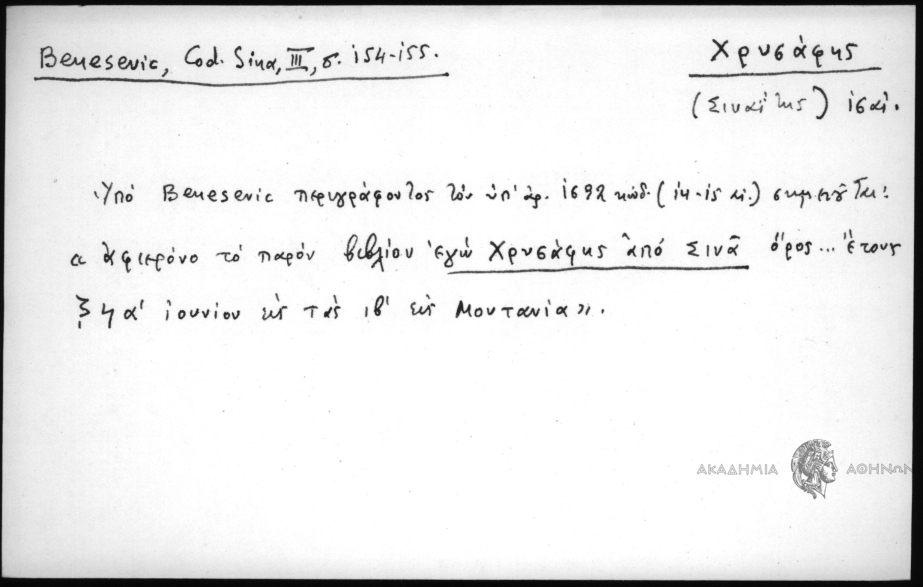 Benesevic, Cod. Sina, III, σ. 154-155.
Χρυσάφης
(Σιναΐτης) ις αι.
Ὑπό Benesevic περιγράφοντος τόν ὑπ' ἀρ. 1692 κώδ. (14-15 αἰ.) σημειοῦται:
« ἀφιερόνο τό παρόν βιβλίον ἐγώ Χρυσάφης ἀπό Σινᾶ ὄρος... ἔτους
ϟ α' ἰουνίου εἰς τάς ιβ' εἰς Μουτανία».
ΑΚΑΔΗΜΙΑ ΑΘΗΝΩΝ